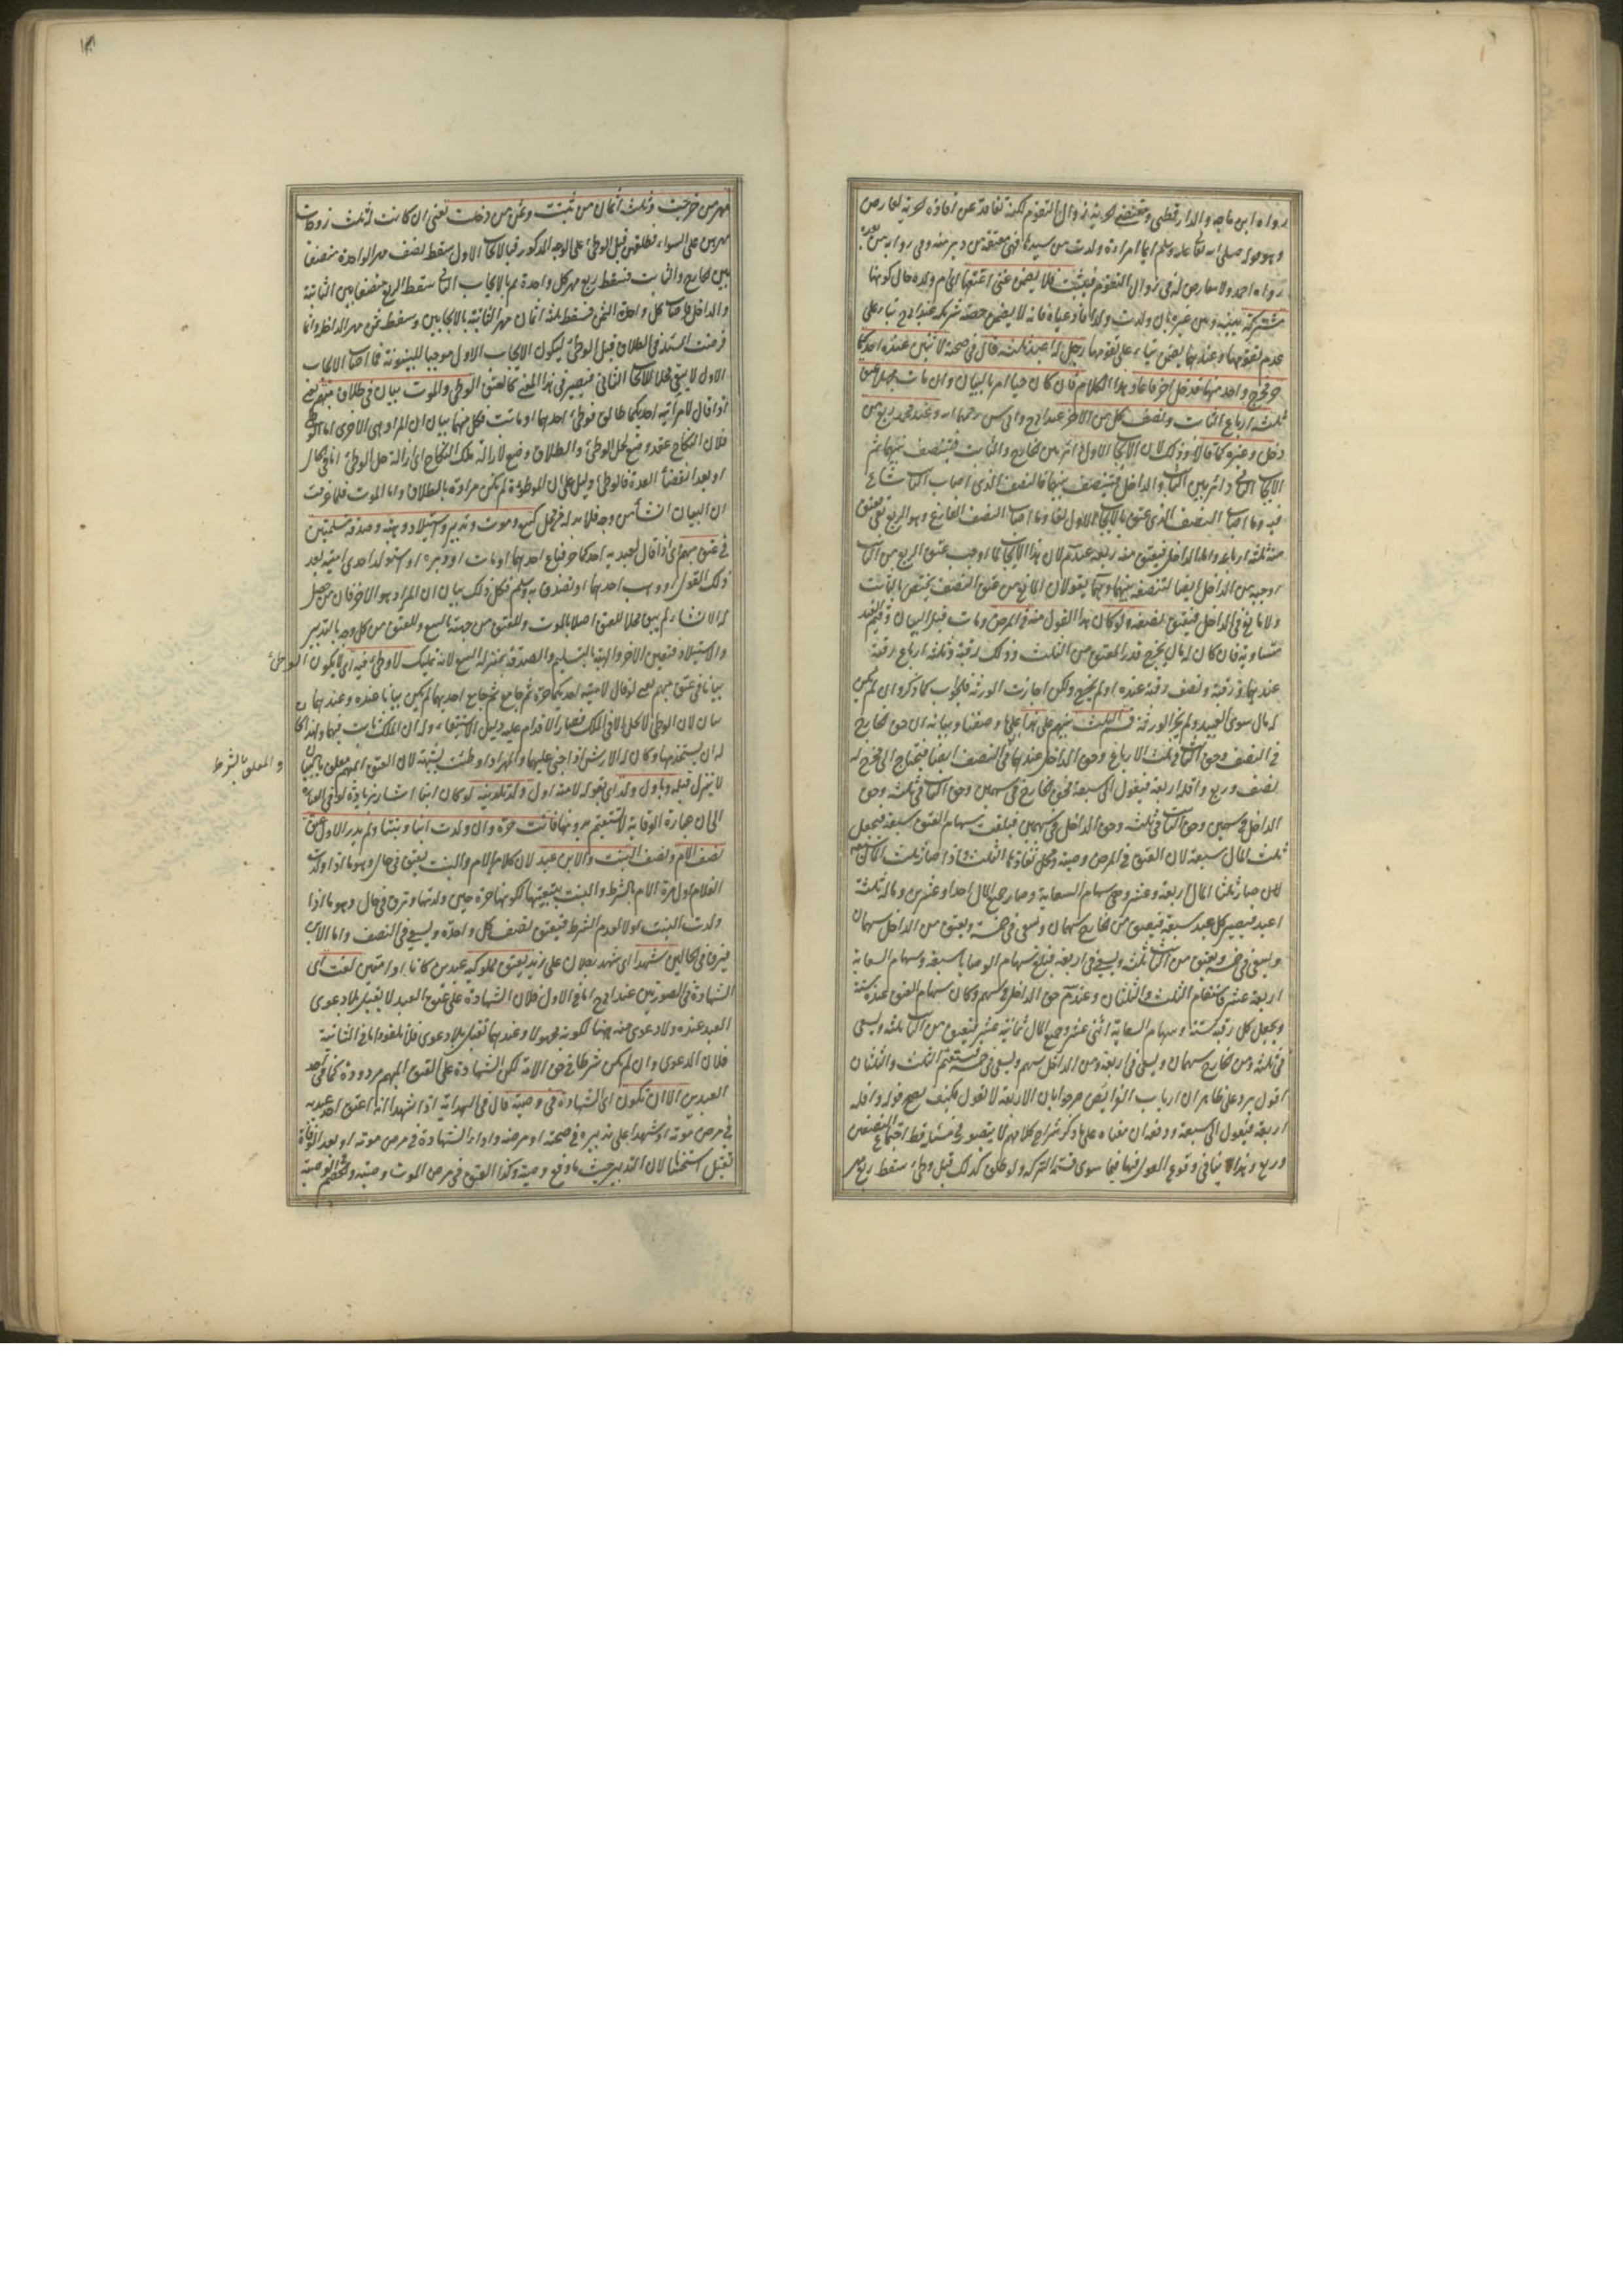 رواه ابن ماجه والدارقطني ومقتضى الحرية زوال التقوم لكنه تقاعد عن افادة الحرية لمعارض
وهو قوله صلى الله تعالى عليه وسلم ايما امراة ولدت من سيدها فهي معتقة عن دبر منه وفي رواية من بعده
رواه احمد ولا معارض له في زوال التقوم فيثبت فلا يضمن غني اعتقها اي ام ولده حال كونها
مشتركة بينه وبين غيره بان ولدت ولدا فادعياه فانه لا يضمن حصة شريكه عند ابي ح بناء على
عدم تقومها وعندهما يضمن بناء على تقومها رجل له اعبد ثلثة قال في صحته لاثنين عنده احدكما
حر فخرج واحد منهما فدخل اخر فاعاد هذا الكلام فان كان حيا امر بالبيان وان مات بلا بيان عتق
ثلثة ارباع الثابت ونصف كل من الاخر عند ابي ح وابي س رحمهما الله وعند محمد ربع من
دخل وغيره كما قالا وذلك لان الايجاب الاول دائر بين الخارج والثابت فيتنصف بينهما ثم
الايجاب الثاني دائر بين الثابت والداخل فيتنصف بينهما فالنصف الذي اصاب الثابت شاع
فيه فما اصاب النصف الذي عتق بالايجاب الاول لغا وما اصاب النصف الفارغ وهو الربع بقي فعتق
منه ثلثة ارباعه واما الداخل فيعتق منه ربعه عند م لان هذا الايجاب لما اوجب عتق الربع من الثابت
اوجبه من الداخل ايضا لتنصفه بينهما وهما يقولان المانع من عتق النصف يختص بالثابت
ولا مانع في الداخل فيعتق نصفه ولو كان هذا القول منه في المرض ومات قبل البيان وقيم العبد
متساوية فان كان له مال يخرج قدر المعتق من الثلث وذلك رقبة وثلثة ارباع رقبة
عندهما ورقبة ونصف رقبة عنده او لم يخرج ولكن اجازت الورثة فالجواب كما ذكر وان لم يكن
له مال سوى العبيد ولم يجز الورثة قسم الثلث بينهم على هذا على ما وصفنا وبيانه ان حق الخارج
في النصف وحق الثابت في ثلثة الارباع وحق الداخل عندهما في النصف ايضا فيحتاج الى مخرج له
نصف وربع واقله اربعة فيعول الى سبعة فحق الخارج في سهمين وحق الثابت في ثلثة وحق
الداخل في سهمين وحق الثابت في ثلثة وحق الداخل في سهمين فبلغت سهام العتق سبعة فيجعل
ثلث المال سبعة لان العتق في المرض وصية ومحل نفاذها الثلث واذا صار ثلث المال سبعة
صار ثلثا المال اربعة عشر وهي سهام السعاية وصار جميع المال احدا وعشرين وماله ثلثة
اعبد فيصير كل عبد سبعة فيعتق من الخارج سهمان ويسعى في خمسة ويعتق من الداخل سهمان
ويسعى في خمسة ويعتق من الثابت ثلثة ويسعى في اربعة فبلغ سهام الوصايا سبعة وسهام السعاية
اربعة عشر فاستقام الثلث والثلثان وعند م حق الداخل في سهم وكان سهام العتق عنده ستة
ويجعل كل رقبة ستة وسهام السعاية اثني عشر وجميع المال ثمانية عشر فيعتق من الثابت ثلثة ويسعى
في ثلثة ومن الخارج سهمان ويسعى في اربعة ومن الداخل سهم ويسعى في خمسة فيستقيم الثلث والثلثان
اقول يرد على ظاهره ان ارباب الفرائض صرحوا بان الاربعة لا تعول فكيف يصح قوله واقله
اربعة فيعول الى سبعة ودفعه ان معناه على ما ذكر شراح كلامهم لا يتصور في مسئلة قط اجتماع النصفين
وربع وهذا لا ينافي وقوع العول فيها فيما سوى قسمة التركة ولو طلق كذلك قبل وطئ سقط ربع مهر
مهر من خرجت وثلثة اثمان من ثبتت وثمن من دخلت يعني ان كانت له ثلث زوجات
مهرهن على السواء فطلقهن قبل الوطئ على الوجه المذكور فبالايجاب الاول سقط نصف مهر الواحدة منصفا
بين الخارج والثابت فسقط ربع مهر كل واحدة ثم بالايجاب الثاني سقط الربع منصفا بين الثابتة
والداخلة فاصاب كل واحدة الثمن فسقط ثلثة اثمان مهر الثابتة بالايجابين وسقط ثمن مهر الداخلة وانما
فرضت المسئلة في الطلاق قبل الوطئ ليكون الايجاب الاول موجبا للبينونة فما اصاب الايجاب
الاول لا يبقى محلا للايجاب الثاني فيصير في هذا المعنى كالعتق الوطئ والموت بيان في طلاق مبهم يعني
اذا قال لامراتيه احديكما طالق فوطئ احدهما او ماتت فكل منهما بيان ان المراد هي الاخرى اما الوطئ
فلان النكاح عقد وضع لحل الوطئ والطلاق وضع لازالة ملك النكاح اي ازالة حل الوطئ اما في الحال
او بعد انقضاء العدة فالوطئ دليل على ان الموطوءة لم تكن مرادة بالطلاق واما الموت فلما عرفت
ان البيان انشاء من وجه فلا بد له من محل كبيع وموت وتدبير واستيلاد وهبة وصدقة مسلمتين
في عتق مبهم اي اذا قال لعبديه احدكما حر فباع احدهما او مات او دبره او استولد احدى امتيه بعد
ذلك القول او وهب احدهما او تصدق به وسلم فكل ذلك بيان ان المراد هو الاخر فان من حصل
له الانشاء لم يبق محلا للعتق اصلا بالموت وللعتق من جهته بالبيع وللعتق من كل وجه بالتدبير
والاستيلاد فتعين الاخر والهبة بالتسليم والصدقة بمنزلة البيع لانه تمليك لا وطئ فيه اي لا يكون الوطئ
بيانا في عتق مبهم يعني لو قال لامتيه احديكما حرة ثم جامع احدهما لم يكن بيانا عنده وعندهما
بيان لان الوطئ لا يحل الا في الملك فصار الاقدام عليه دليل الاستبقاء وله ان الملك ثابت فيهما ولهذا كان
له ان يستخدمهما وكان له الارش اذا جني عليهما والمهر اذا وطئت بشبهة لان العتق المبهم معلق بالبيان
والمعلق بالشرط
لا ينزل قبله وباول ولد اي بقوله لامته اول ولد تلدينه لو كان ابنا اشار بزيادة لو في العبارة
الى ان عبارة الوقاية لا تستقيم بدونها فانت حرة وان ولدت ابنا وبنتا ولم يدر الاول عتق
نصف الام ونصف البنت والابن عبد لان كلا من الام والبنت يعتق في حال وهو ما اذا ولدت
الغلام اول مرة الام بالشرط والبنت بتبعيتها لكونها حرة حين ولدتها وترق في حال وهو ما اذا
ولدت البنت اولا لعدم الشرط فيعتق نصف كل واحدة ويسعى في النصف واما الابن
فيرق في الحالين شهدا اي شهد رجلان على زيد بعتق مملوكيه عبدين كانا او امتين لغت اي
الشهادة في الصورتين عند ابي ح اما في الاول فلان الشهادة على عتق العبد لا تقبل بلا دعوى
العبد عنده ولا دعوى منه ههنا لكونه مجهولا وعندهما تقبل بلا دعوى فلا تلغو واما في الثانية
فلان الدعوى وان لم يكن شرطا في حق الامة لكن الشهادة على العتق المبهم مردودة كما في احد
العبدين الا ان تكون اي الشهادة في وصية قال في الهداية اذا شهدا انه اعتق احد عبديه
في مرض موته او شهدا على تدبيره في صحته او مرضه واداء الشهادة في مرض موته او بعد الوفاة
تقبل استحسانا لان التدبير حيث ما وقع وصية وكذا العتق في مرض الموت وصية والخصم في الوصية